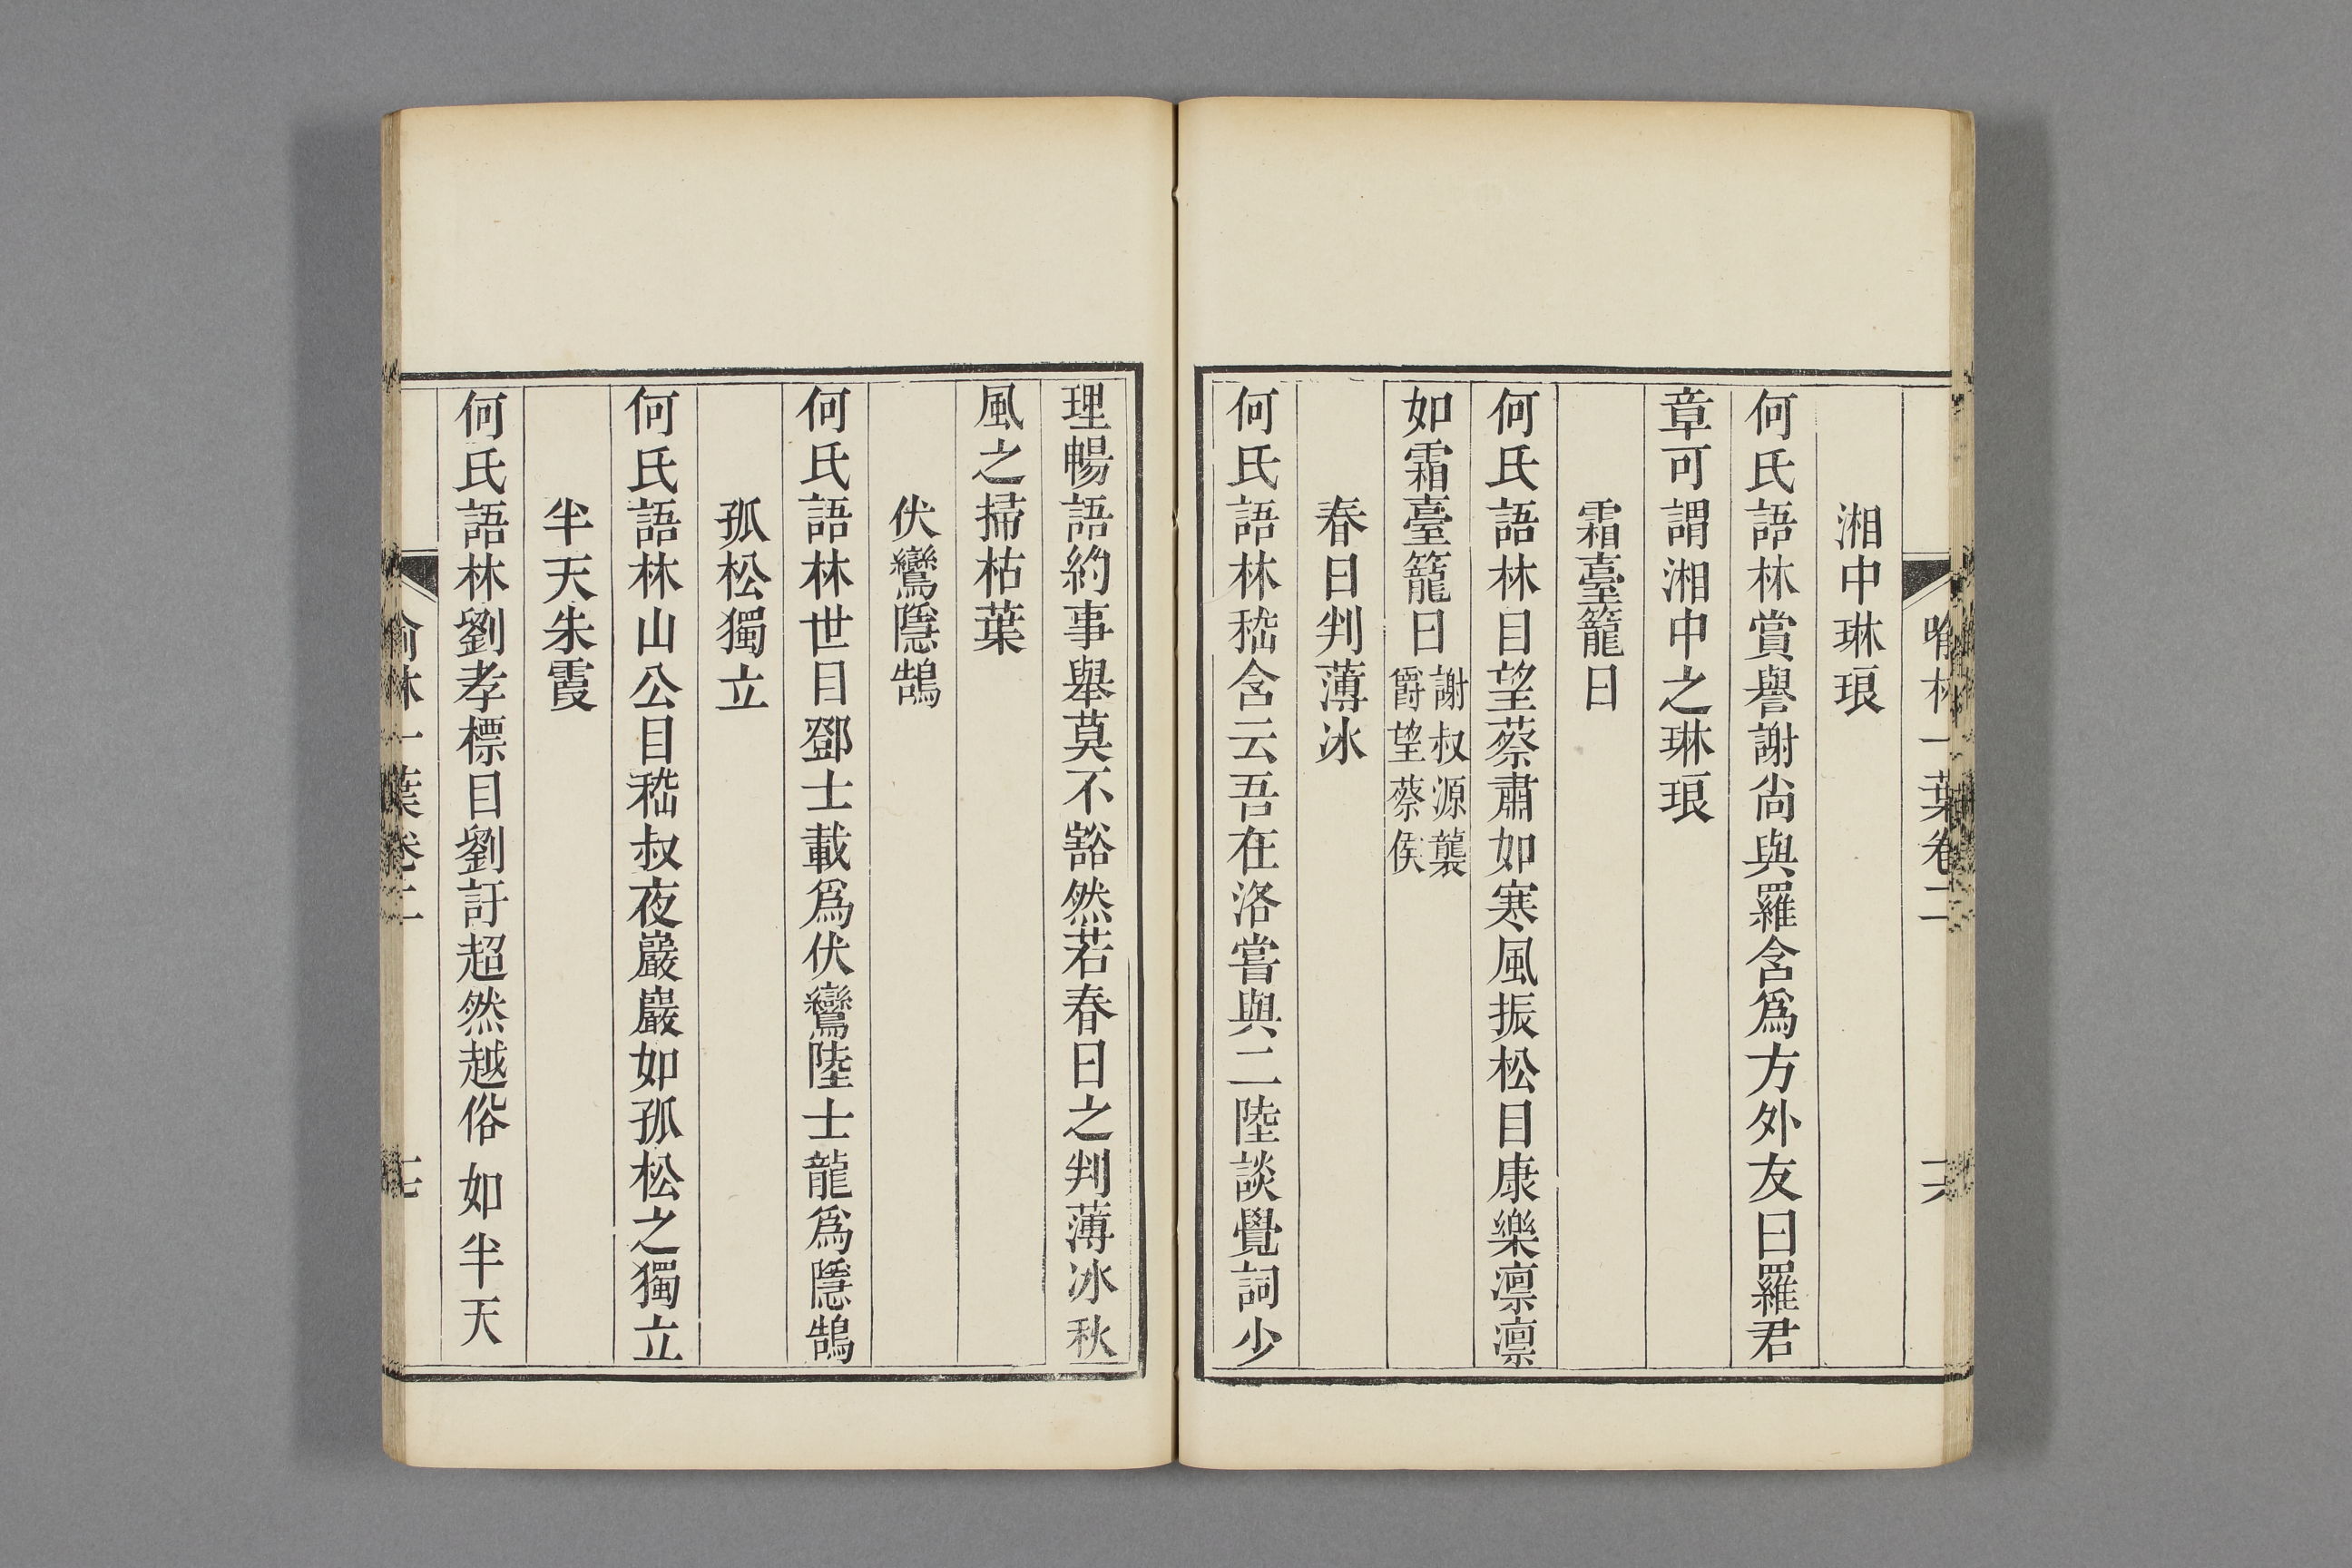 喻林一葉卷二
湘中琳琅
何氏語林賞譽謝尚與羅含爲方外友曰羅君
章可謂湘中之琳琅
霜臺籠日
何氏語林目望蔡肅如寒風振松目康樂凛凛
如霜臺籠日謝叔源襲
爵望蔡侯
春日判薄冰
何氏語林嵇含云吾在洛嘗與二陸談覺詞少
理暢語約事舉莫不豁然若春日之判薄冰秋
風之掃枯葉
伏鸞隱鵠
何氏語林世目鄧士載爲伏鸞陸士龍爲隱鵠
孤松獨立
何氏語林山公目嵇叔夜巖巖如孤松之獨立
半天朱霞
何氏語林劉孝標目劉訏超然越俗如半天
喻林一葉卷二